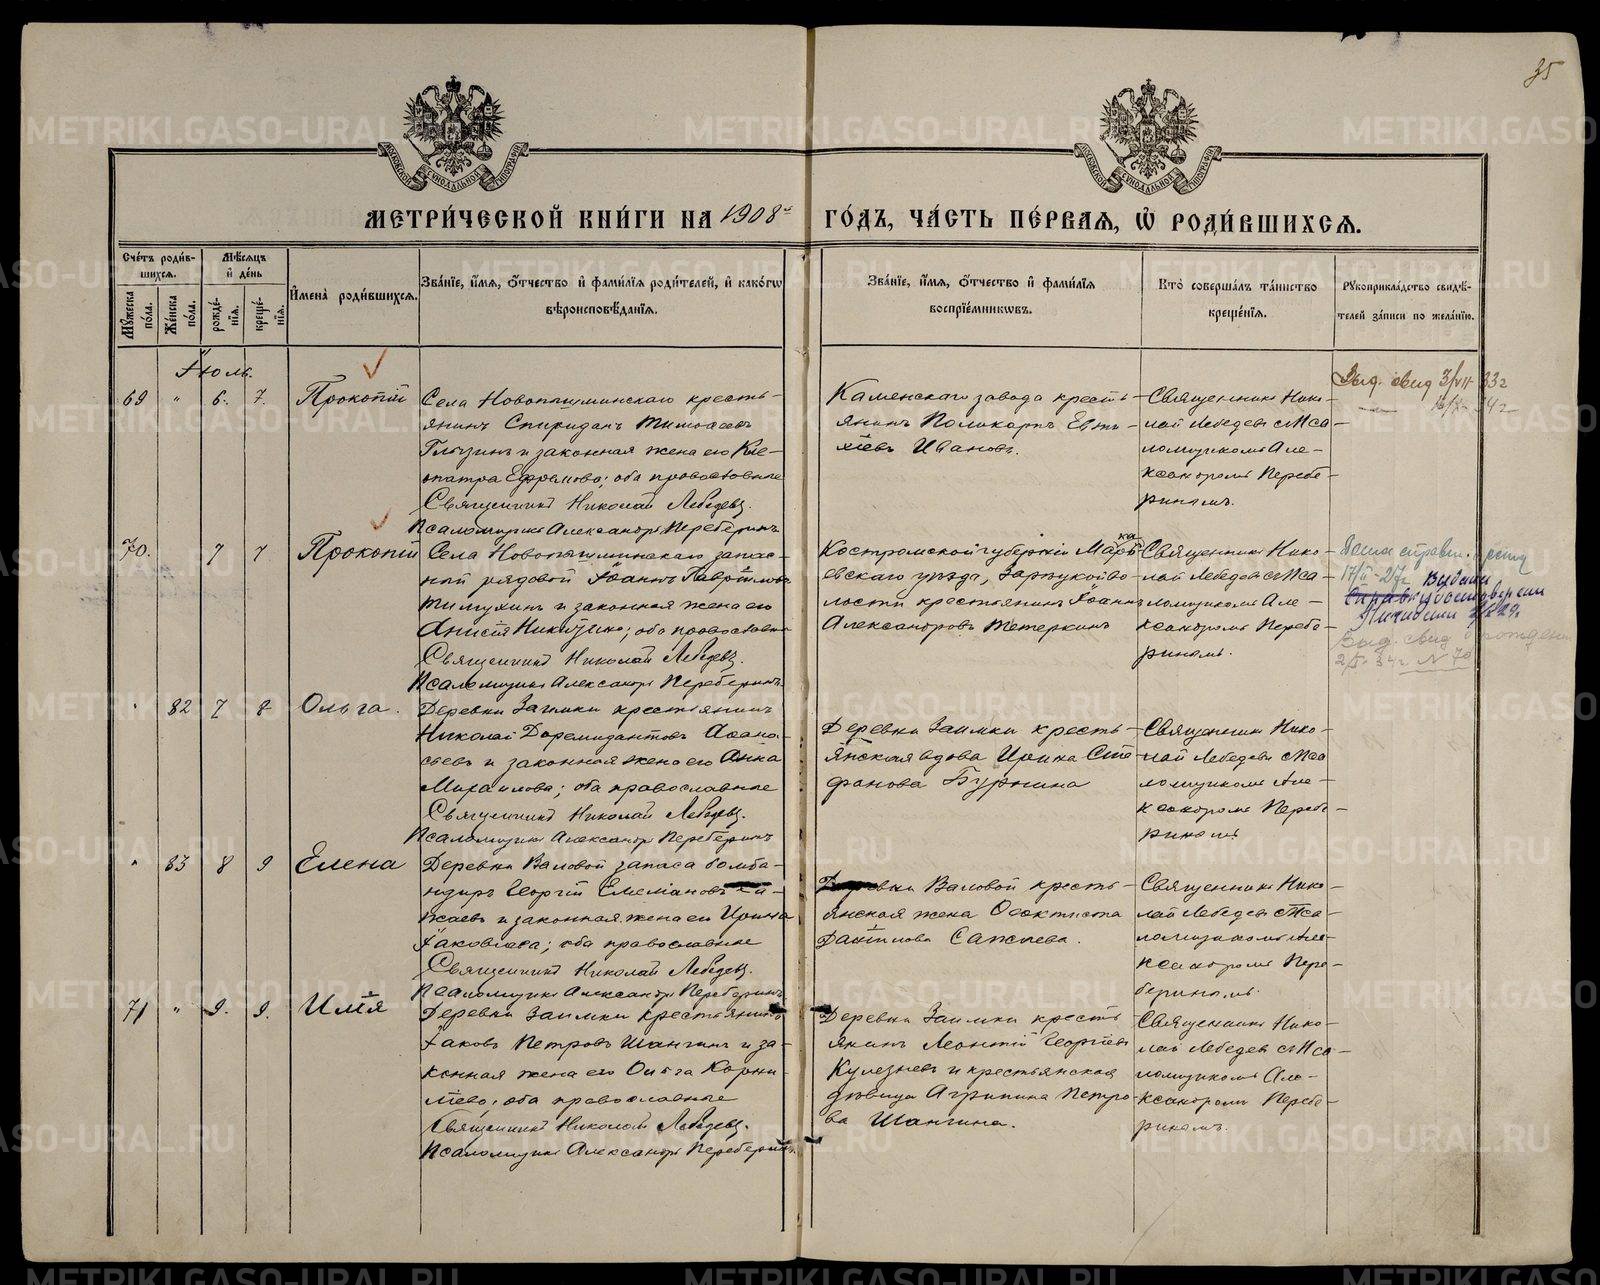 35
МОСКОВСКОЙ СѴНОДАЛЬНОЙ ТИПОГРАФІИ
МОСКОВСКОЙ СѴНОДАЛЬНОЙ ТИПОГРАФІИ
МЕТРИ́ЧЕСКОЙ КНИ́ГИ НА 1908 ГО́ДЪ, ЧА́СТЬ ПЕ́РВАЯ, Ѡ РОДИ́ВШИХСЯ.
Счетъ роди́вшихся.
Му́жеска по́ла.
Же́нска по́ла.
Мѣсяцъ и де́нь
рожде́нїя.
креще́нїя.
Имена̀ роди́вшихся.
Зва́нїе, и́мя, о́тчество и фами́лїя роди́телей, и како́гѡ
вѣроисповѣ́данїя.
Зва́нїе, и́мя, о́тчество и фами́лїя
воспрїе́мниковъ.
Кто̀ соверша́лъ та́инство
креще́нїя.
Рукоприкла́дство свидѣ́-
телей за́писи по жела́нїю.
Іюль.
69 " 6. 7. Прокопій
Села Новопышминскаго кресть-
янинъ Спиридонъ Тимофеевъ
и законная жена его Кле-
опатра Ефремова; оба православные
Священникъ Николай Лебедевъ.
Псаломщикъ Александръ Переберинъ
Каменскаго завода кресть-
янинъ Поликарпъ Евти-
хіевъ Ивановъ.
Священникъ Нико-
лай Лебедевъ с Пса-
ломщикомъ Але-
ксандромъ Перебе-
ринымъ.
Выд. свид 3/VII 33 г
34 г
70. 7 7 Прокопій
Села Новопышминскаго запас-
ный рядовой Іоаннъ Гавріиловъ
и законная жена его
Анисія Никитина; оба православные
Священникъ Николай Лебедевъ.
Псаломщикъ Александръ Переберинъ
Костромской губерніи Мака
евскаго уѣзда, во-
лости крестьянинъ Іоаннъ
Александровъ Тетеркинъ
Священникъ Нико-
лай Лебедевъ с Пса-
ломщикомъ Але-
ксандромъ Перебе-
ринымъ.
справк.
17/II-27 г Выдана
Выд. свид о рождении
2/X 34 г. N 70
" 82 7 8 Ольга.
Деревни Заимки крестьянинъ
Николай Доремидонтовъ Афана-
сьевъ и законная жена его Анна
Михаилова; оба православные
Священникъ Николай Лебедевъ.
Псаломщикъ Александръ Переберинъ
Деревни Заимки кресть-
янская вдова Ирина Сте-
фанова Бурнина
Священникъ Нико-
лай Лебедевъ с Пса-
ломщикомъ Але-
ксандромъ Перебе-
ринымъ
" 83 8 9 Елена
Деревни Валовой запаса бомба-
ндиръ Георгій
и законная жена его Ирина
Іаковлева; оба православные
Священникъ Николай Лебедевъ.
Псаломщикъ Александръ Переберинъ
Деревни Валовой кресть-
янская жена Феоктиста
Даніилова Сажаева.
Священникъ Нико-
лай Лебедевъ с Пса-
ломщикомъ Але-
ксандромъ Пере-
беринымъ.
71 " 9. 9. Илія
Деревни Заимки крестьянинъ
Іаковъ Петровъ Шангинъ и за-
конная жена его Ольга Корни-
ліева; оба православные
Священникъ Николай Лебедевъ.
Псаломщикъ Александръ Переберинъ.
Деревни Заимки кресть-
янинъ Леонтій Георгіевъ
Кулезневъ и крестьянская
дѣвица Агрипина Петро-
ва Шангина.
Священникъ Нико-
лай Лебедевъ с Пса-
ломщикомъ Але-
ксандромъ Перебе-
ринымъ.
METRIKI.GASO-URAL.RU